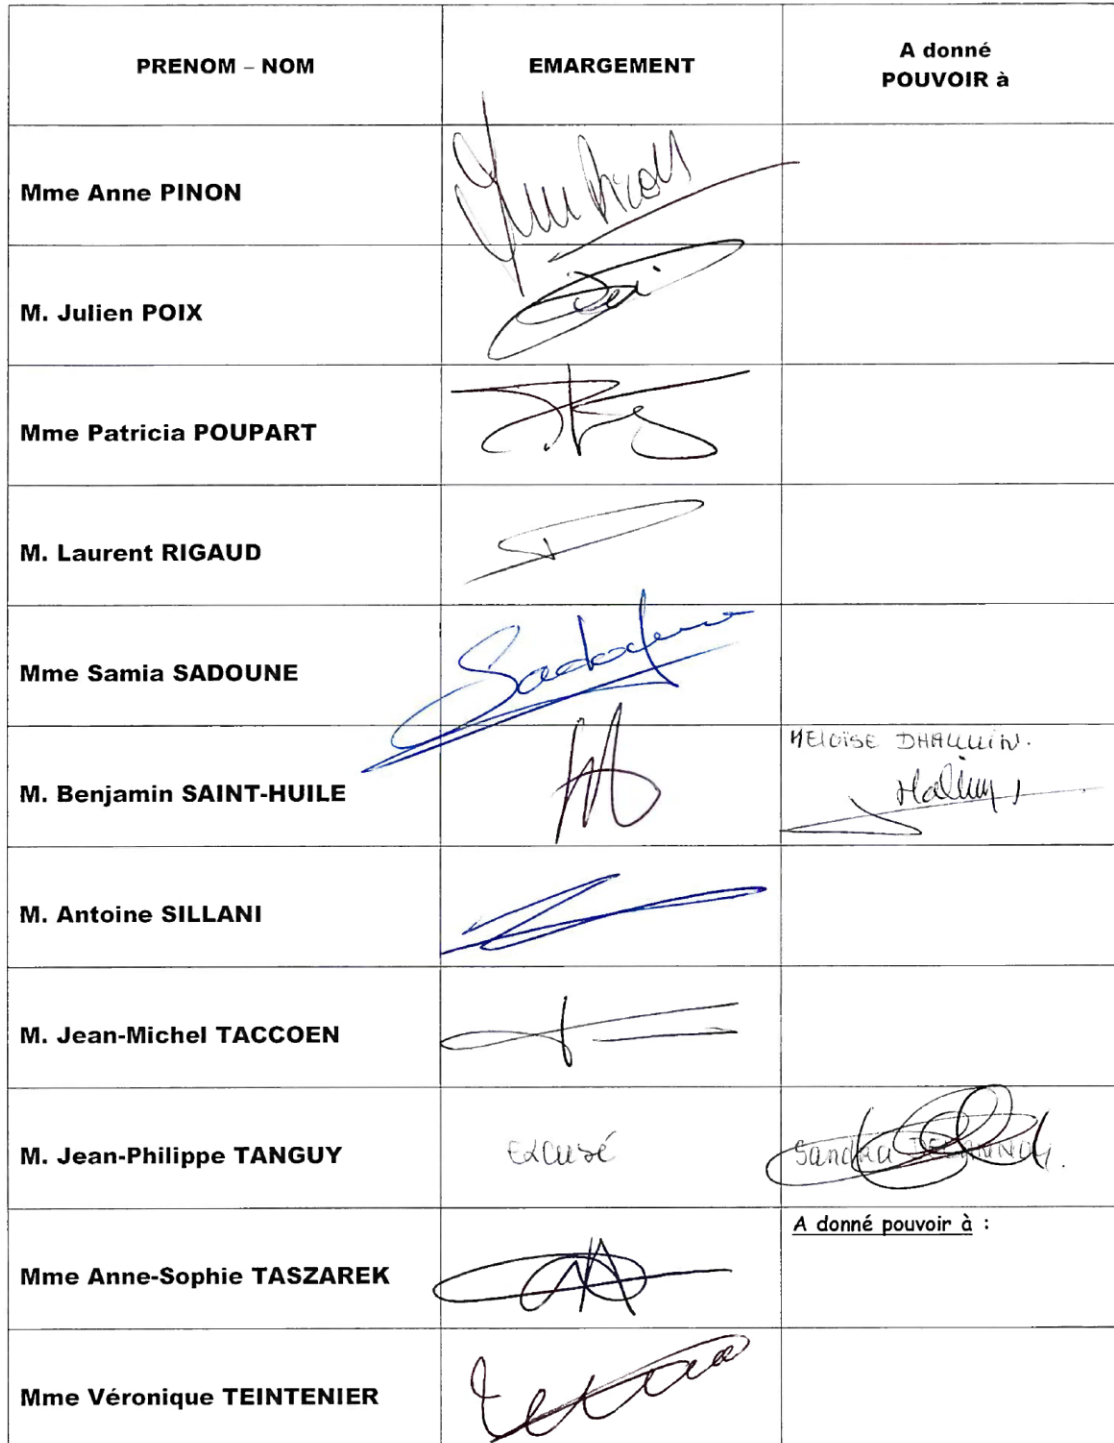 PRENOM – NOM
EMARGEMENT
A donné
POUVOIR à
Mme Anne PINON
M. Julien POIX
Mme Patricia POUPART
M. Laurent RIGAUD
Mme Samia SADOUNE
M. Benjamin SAINT-HUILE
HELOÏSE DHALLUIN.
M. Antoine SILLANI
M. Jean-Michel TACCOEN
M. Jean-Philippe TANGUY
Excusé
Sandra DELANNOY.
Mme Anne-Sophie TASZAREK
A donné pouvoir à :
Mme Véronique TEINTENIER